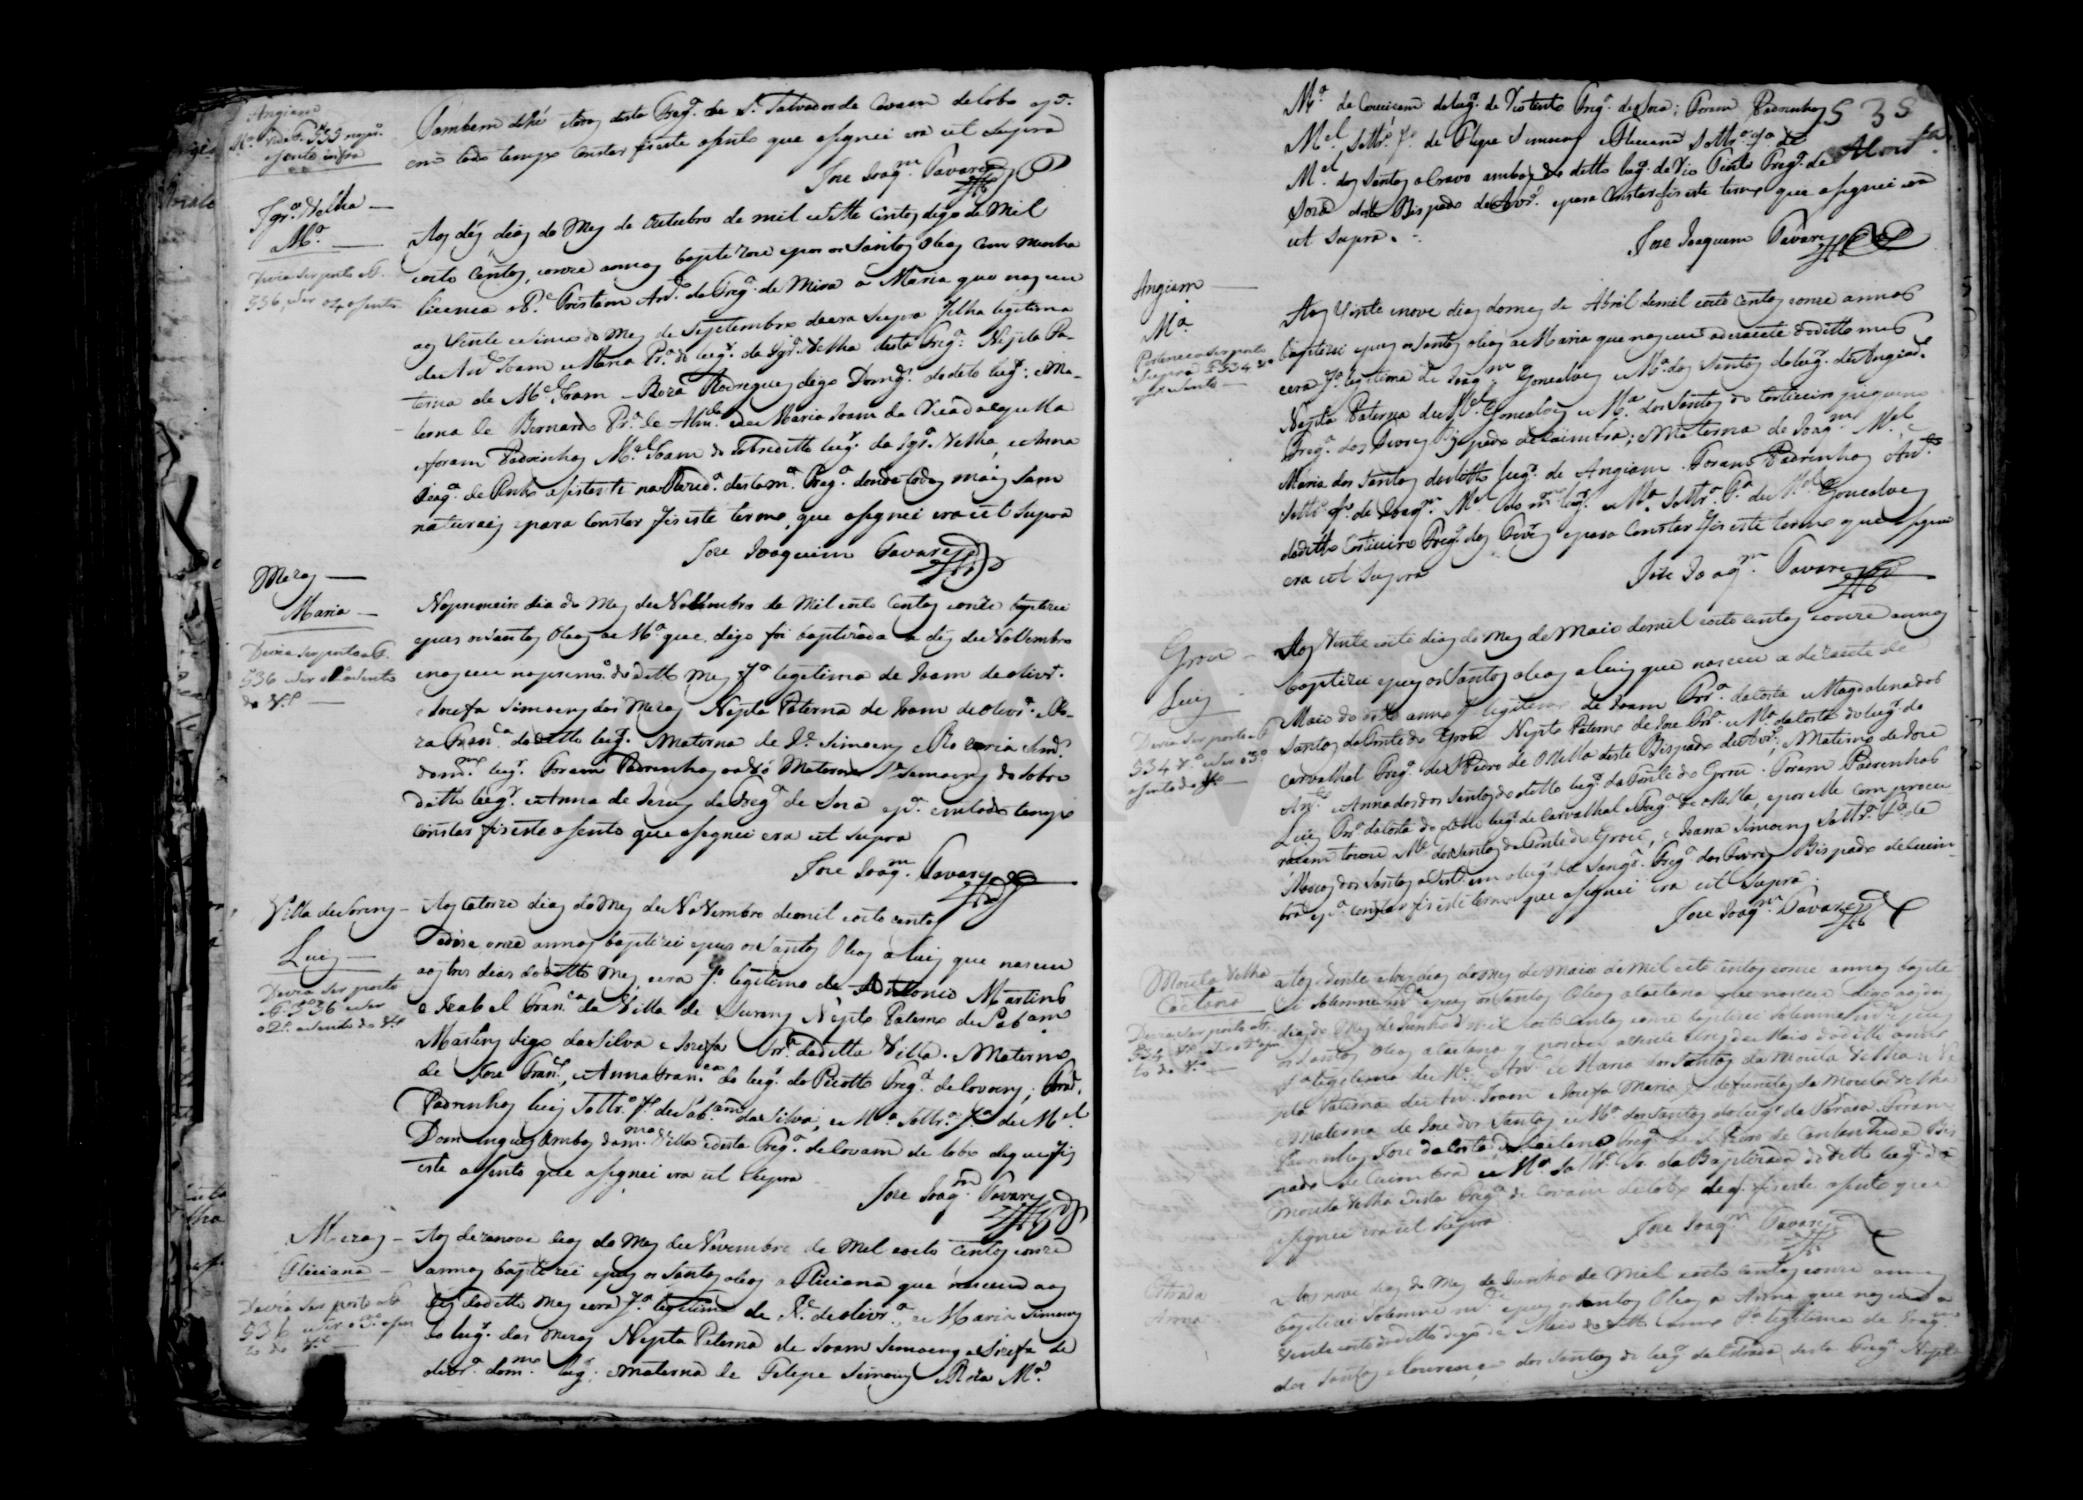 Angiam
Mª Vide f. 535 no pr.º
asento infra
Tambem dehé desta Freg.ª de S. Salvador de Covam do Lobo e pª
em todo tempo constar fis este asento que asignei era ut supra
Joze Joaq.m Tavares
Igr.ª Velha
Mª
Devia ser posto a f.
536, e ser o 4 asento
Aos dés dias do Mes de Outubro de mil e sette centos digo de Mil
oito centos, e onze annos baptizou e pos os Santos Oleos com minha
licenca o P.e Tristam And.e da Freg.ª de Mira a Maria que nasceu
aos vinte e sinco do Mes de Septembro da era supra Filha legitima
de An.to Joam e Maria Pr.ª do lug.r da Igr.ª Velha desta Freg.ª: Neta Pa-
terna de M.el Joam e Roza Rodrigues digo Doming.s do dito lug.r; e Ma-
terna de Bernardo Pr.ª de Alm.da e de Maria Joam da
e foram Padrinhos M.el Joam do sobreditto lug.r da Igr.ª Velha, e Anna
Joaq.ª de Pinho asistente na desta m.ª Freg.ª donde todos mais sam
naturais e para constar fis este termo, que asignei era ut supra
Joze Joaquim Tavares
Mezas
Maria
Devia ser posto a f.
536 e ser o 1º asento
da Vª
No primeiro dia do Mes de Novembro de Mil oito centos e onze baptizei
e pus os Santos Oleos a Mª que digo foi baptizada a dez de Novembro
e nasceu no prim.º do ditto Mes Fª legitima de Joam de Olivr.ª
e Josefa Simoens das Mezas Neta Paterna de Joam de Olivr.ª e Ro-
za Fran.ca do ditto lug.r. Materna de J.e Simoens e Rozaria
do m.mo lug.r Foram Padrinhos o Avó Materno J.e Simoens do sobre
ditto lug.r e Anna de Jezus da Freg.ª de Soza e pª em todo tempo
constar fis este asento que asignei era ut supra
Joze Joaq.m Tavares
Villa de Sorens
Luis
Devia ser posto
a f. 536 e ser
o 2º asento da Vª
Aos catorze dias do Mes de Novembro de mil oito centos
e doze, onze annos baptizei e pus os Santos Oleos a Luis que nasceu
aos tres dias do ditto Mes, e era Fº legitimo de Antonio Martins
e Izabel Fran.ca da Villa de Sorens Neto Paterno de Sab.am
Martins digo da Silva e Josefa Fr.ª da ditta Villa. Materno
de Joze Fran.co, e Anna Fran.ca do lug.r do Picotto Freg.ª de Covoens; foram
Padrinhos Luis soltr.º fº de Sab.am da Silva, e Mª soltr.ª fª de M.el
Domingues ambos da m.ma Villa e desta Freg.ª de Covam do Lobo de que fis
este asento que asignei era ut supra
Joze Joaq.m Tavares
Mezas
Feliciana
Devia ser posto a f.
536 e ser o 3º asen
to da Vª
Aos dezanove dias do Mes de Novembro de Mil oito centos e onze
annos baptizei e pus os Santos Oleos a Feliciana que nasceu aos
dez do ditto Mes e era Fª legitima de J.e de Olivr.ª, e Maria Simoens
do lug.r das Mezas Neta Paterna de Joam Simoens e Josefa de
Olivr.ª do m.mo lug.r; e Materna de Felipe Simoens e Roza Mª
535
Mª da Conceicam do lug.r de Rio tinto Freg.ª de Soza: Foram Padrinhos
M.el soltr.º fº de Felipe Simoens e Feliciana soltr.ª fª de
M.el dos Santos o Cravo ambos do ditto lug.r de Rio Tinto Freg.ª de
Soza deste Bispado de Avr.º e para constar fis este termo que asignei era
ut supra.
Joze Joaquim Tavares
Angiam
Mª
Pertence ser posto
supra f. 534 vº
Aos Vinte e nove dias do mes de Abril de mil oito centos e onze annos
baptizei e pus os Santos oleos a Maria que nasceu a dezasete do ditto mes
e era fª legitima de Joaq.m Gonçalves e Mª dos Santos do lug.r de Angiam
Neta Paterna de M.el Gonçalves e Mª dos Santos do Corticeiro piqueno
Freg.ª dos Covoes Bispado de Coimbra; e Materna de Joaq.m M.el e
Maria dos Santos do ditto lug.r de Angiam. Foram Padrinhos An.to
soltr.º fº de Joaq.m M.el do m.mo lug.r e Mª soltr.ª fª de M.el Gonçalves
do ditto Corticeiro Freg.ª dos e para constar fis este termo que asignei
era ut supra
Joze Joaq.m Tavares
Grou
Luis
Devia ser posto a f.
534 vº e ser o 3º
asento da Vª
Aos Vinte e oito dias do Mes de Maio de mil oito centos e onze annos
baptizei e pus os Santos oleos a Luis que nasceu a dezasete de
Maio do ditto anno fº legitimo de Joam Fr.ª da Costa e Magdalena dos
Santos da Fonte do Grou Neto Paterno de Joze Fr.ª e Mª da Costa do lug.r do
Carvalhal Freg.ª de S. Pedro de deste Bispado de Avr.º; e Materno de Joze
An.to e Anna dos Santos do ditto lug.r da Fonte do Grou. Foram Padrinhos
Luis Fr.ª da Costa do ditto lug.r de Carvalhal e Freg.ª de e por elle com procu
racam tocou M.el dos Santos da Fonte do Grou, e Joana Simoens soltr.ª fª de
Marcos dos Santos Freg.ª dos Bispado de Coim-
bra e pª constar fis este termo que asignei era ut supra.
Joze Joaq.m Tavares
Mouta Velha
Caetana
Devia ser posto a f.
534 vº
to da Vª
Aos Vinte e tres dias do mes de Maio de Mil oito centos e onze annos baptizei
solemnem.te e pus os Santos Oleos a Caetana que nasceu digo aos dois
dias do Mes de Junho de mil oito centos e onze baptizei solemnem.te e pus
os Santos Oleos a Caetana q nasceu a vinte e tres de Maio do ditto anno
fª legitima de M.el An.to e Maria dos Santos da Mouta Velha e Ne
ta Paterna de An.to Joam e Josefa Maria, defuntos da Mouta Velha
e Materna de Joze dos Santos, e Mª dos Santos do lug.r da Foram
Padrinhos Joze da Costa Caetano Freg.ª de S. Pedro de Cantanhede Bis
pado de Coimbra e Mª soltr.ª da Baptizada do ditto lug.r da
Mouta Velha e desta Freg.ª de Covam do Lobo de q fis este asento que
asignei era ut supra
Joze Joaq.m Tavares
Estrada
Anna
Aos nove dias do Mes de Junho de Mil oito centos e onze annos
baptizei solemnem.te e pus os Santos Oleos a Anna que nasceu a
vinte e oito do ditto digo de Maio do ditto anno Fª legitima de Joaq.m
dos Santos e Lourença dos Santos do lug.r da Estrada desta Freg.ª Neta